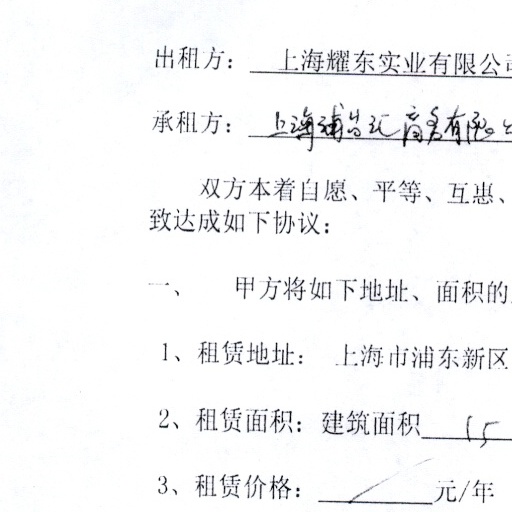 出租方： 上海耀东实业有限公司
承租方： 上海浦 汇商务有限公
双方本着自愿、平等、互惠、
致达成如下协议：
一、 甲方将如下地址、面积的
1、租赁地址： 上海市浦东新区
2、租赁面积：建筑面积 15
3、租赁价格： 元/年